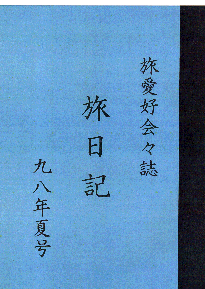 旅愛好会々誌
旅日記
九八年夏号